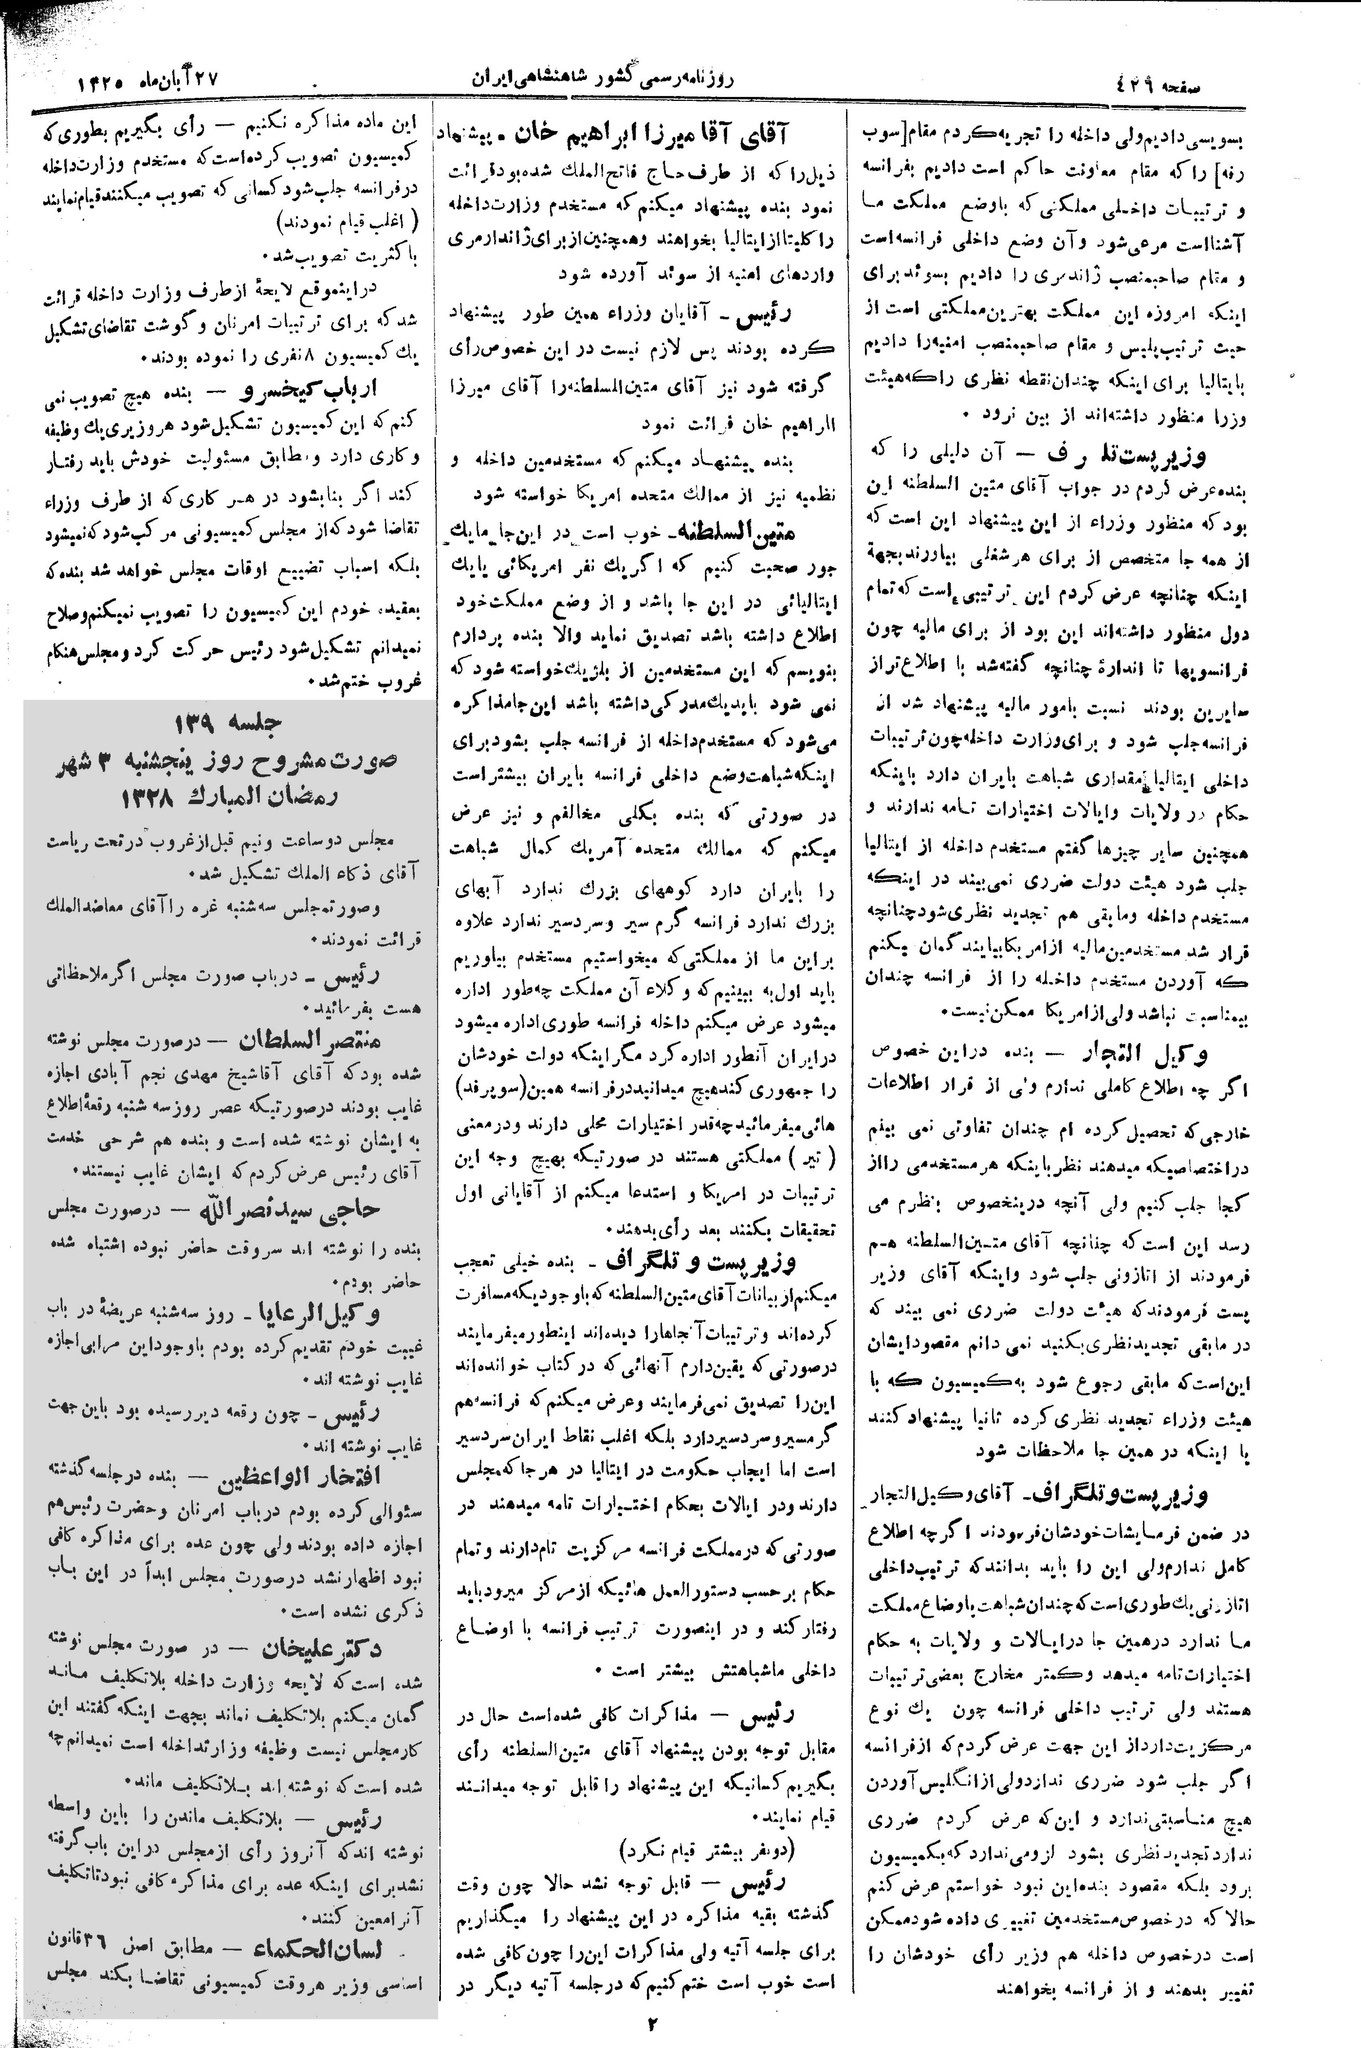 صفحه ٤٢٩
روزنامه رسمی کشور شاهنشاهی ایران
٢٧ آبان ماه ١٣٢٥
بسویسی دادیم ولی داخله را تجربه کردم مقام [سوب
رفه] را که مقام معاونت حاکم است دادیم بفرانسه
و ترتیبات داخلی مملکتی که باوضع مملکت ما
آشنا است مرعی شود وآن وضع داخلی فرانسه است
و مقام صاحبمنصب ژاندرمری را دادیم بسوئد برای
اینکه امروزه این مملکت بهترین مملکتی است از
حیث ترتیب پلیس و مقام صاحبمنصب امنیه را دادیم
بایتالیا برای اینکه چندان نقطه نظری را که هیئت
وزرا منظور داشته‌اند از بین نرود ۰
وزیر پست تلـ رف — آن دلیلی را که
بنده عرض کردم در جواب آقای متین السلطنه این
بود که منظور وزراء از این پیشنهاد این است که
از همه جا متخصص از برای هر شغلی بیاورند بجهة
اینکه چنانچه عرض کردم این ترتیبی است که تمام
دول منظور داشته‌اند این بود از برای مالیه چون
فرانسویها تا اندازهٔ چنانچه گفته شد با اطلاع تر از
سایرین بودند نسبت بامور مالیه پیشنهاد شد از
فرانسه جلب شود و برای وزارت داخله چون ترتیبات
داخلی ایتالیا مقداری شباهت بایران دارد باینکه
حکام در ولایات وایالات اختیارات تامه ندارند و
همچنین سایر چیزها گفتم مستخدم داخله از ایتالیا
جلب شود هیئت دولت ضرری نمی بیند در اینکه
مستخدم داخله ومابقی هم تجدید نظری شود چنانچه
قرار شد مستخدمین مالیه از امریکا بیایند گمان میکنم
که آوردن مستخدم داخله را از فرانسه چندان
بیمناسبت نباشد ولی از امریکا ممکن نیست۰
وکیل التجار — بنده در این خصوص
اگر چه اطلاع کاملی ندارم ولی از قرار اطلاعات
خارجی که تحصیل کرده ام چندان تفاوتی نمی بینم
در اختصاصیکه میدهند نظر باینکه هر مستخدمی را از
کجا جلب کنیم ولی آنچه در اینخصوص بنظرم می
رسد این است که چنانچه آقای متین السلطنه هم
فرمودند از اتازونی جلب شود و اینکه آقای وزیر
پست فرمودند که هیئت دولت ضرری نمی بیند که
در مابقی تجدید نظری بکنید نمی دانم مقصود ایشان
این است که مابقی رجوع شود به کمیسیون که با
هیئت وزراء تجدید نظری کرده ثانیا پیشنهاد کنند
یا اینکه در همین جا ملاحظات شود
وزیر پست و تلگراف ـ آقای وکیل التجار
در ضمن فرمایشات خودشان فرمودند اگر چه اطلاع
کامل ندارم ولی این را باید بدانند که ترتیب داخلی
اتازونی یک طوری است که چندان شباهت باوضاع مملکت
ما ندارد در همین جا در ایالات و ولایات به حکام
اختیارات تامه میدهد و کمتر مخارج بعضی ترتیبات
هستند ولی ترتیب داخلی فرانسه چون یک نوع
مرکزیت دارد از این جهت عرض کردم که از فرانسه
اگر جلب شود ضرری ندارد ولی از انگلیس آوردن
هیچ مناسبتی ندارد و این که عرض کردم ضرری
ندارد تجدید نظری بشود لزومی ندارد که بکمیسیون
برود بلکه مقصود بنده این نبود خواستم عرض کنم
حالا که در خصوص مستخدمین تغییری داده شود ممکن
است در خصوص داخله هم وزیر رأی خودشان را
تغییر بدهند و از فرانسه بخواهند
آقای آقا میرزا ابراهیم خان ـ پیشنهاد
ذیل را که از طرف حاج فاتح الملک شده بود قرائت
نمود بنده پیشنهاد میکنم که مستخدم وزارت داخله
را کلیتا از ایتالیا بخواهند و همچنین از برای ژاندارمری
واردهای امنیه از سوئد آورده شود
رئیس ـ آقایان وزراء همین طور پیشنهاد
کرده بودند پس لازم نیست در این خصوص رأی
گرفته شود نیز آقای متین السلطنه را آقای میرزا
ااراهیم خان قرائت نمود
بنده پیشنهاد میکنم که مستخدمین داخله و
نظمیه نیز از ممالک متحده امریکا خواسته شود
متین السلطنه ـ خوب است در این جا ما یک
جور صحبت کنیم که اگر یک نفر امریکائی یا یک
ایتالیائی در این جا باشد و از وضع مملکت خود
اطلاع داشته باشد تصدیق نماید والا بنده بردارم
بنویسم که این مستخدمین از بلژیک خواسته شود که
نمی شود باید یک مدرکی داشته باشد این جا مذاکره
می‌شود که مستخدم داخله از فرانسه جلب بشود برای
اینکه شباهت وضع داخلی فرانسه بایران بیشتر است
در صورتی که بنده بکلی مخالفم و نیز عرض
میکنم که ممالک متحده آمریک کمال شباهت
را بایران دارد کوههای بزرک ندارد آبهای
بزرک ندارد فرانسه گرم سیر و سردسیر ندارد علاوه
بر این ما از مملکتی که میخواستیم مستخدم بیاوریم
باید اول به ببینیم که وکلاء آن مملکت چه طور اداره
میشود عرض میکنم داخله فرانسه طوری اداره میشود
در ایران آنطور اداره کرد مگر اینکه دولت خودشان
را جمهوری کند هیچ میدانید در فرانسه همین (سوپرفد)
هائی میفرمائید چه قدر اختیارات محلی دارند و در معنی
(تیر) مملکتی هستند در صورتیکه بهیچ وجه این
ترتیبات در امریکا و استدعا میکنم از آقایانی اول
تحقیقات بکنند بعد رأی بدهند۰
وزیر پست و تلگراف ـ بنده خیلی تعجب
میکنم از بیانات آقای متین السلطنه که باوجودیکه مسافرت
کرده‌اند و ترتیبات آنجاها را دیده‌اند اینطور میفرمایند
در صورتی که یقین دارم آنهائی که در کتاب خوانده‌اند
این را تصدیق نمی فرمایند و عرض میکنم که فرانسه هم
گرمسیر و سردسیر دارد بلکه اغلب نقاط ایران سردسیر
است اما ایجاب حکومت در ایتالیا در هر جا که مجلس
دارند و در ایالات بحکام اختیارات تامه میدهند در
صورتی که در مملکت فرانسه مرکزیت تام دارند و تمام
حکام بر حسب دستورالعمل هائیکه از مرکز میرود باید
رفتار کند و در اینصورت ترتیب فرانسه با اوضاع
داخلی ما شباهتش بیشتر است ۰
رئیس — مذاکرات کافی شده است حال در
مقابل توجه بودن پیشنهاد آقای متین السلطنه رأی
بگیریم کسانیکه این پیشنهاد را قابل توجه میدانند
قیام نمایند۰
(دو نفر بیشتر قیام نکرد)
رئیس — قابل توجه نشد حالا چون وقت
گذشته بقیه مذاکره در این پیشنهاد را میگذاریم
برای جلسه آتیه ولی مذاکرات این را چون کافی شده
است خوب است ختم کنیم که در جلسه آتیه دیگر در
این ماده مذاکره نکنیم — رأی بگیریم بطوری که
کمیسیون تصویب کرده است که مستخدم وزارت داخله
در فرانسه جلب شود کسانی که تصویب میکنند قیام نمایند
(اغلب قیام نمودند)
با کثریت تصویب شد۰
در اینموقع لایحهٔ از طرف وزارت داخله قرائت
شد که برای ترتیبات امرنان و گوشت تقاضای تشکیل
یک کمیسیون ٨ نفری را نموده بودند۰
ارباب کیخسرو — بنده هیچ تصویب نمی
کنم که این کمیسیون تشکیل شود هر وزیری یک وظیفه
و کاری دارد و مطابق مسئولیت خودش باید رفتار
کند اگر بنا بشود در هر کاری که از طرف وزراء
تقاضا شود که از مجلس کمیسیونی مرکب شود که نمیشود
بلکه اسباب تضییع اوقات مجلس خواهد شد بنده که
بعقیده خودم این کمیسیون را تصویب نمیکنم و صلاح
نمیدانم تشکیل شود رئیس حرکت کرد و مجلس هنکام
غروب ختم شد۰
جلسه ١٣٩
صورت مشروح روز پنجشنبه ٣ شهر
رمضان المبارک ١٣٢٨
مجلس دو ساعت ونیم قبل از غروب در تحت ریاست
آقای ذکاء الملک تشکیل شد۰
و صورتمجلس سه شنبه غره را آقای معاضد الملک
قرائت نمودند۰
رئیس ـ درباب صورت مجلس اگر ملاحظاتی
هست بفرمائید۰
منتصر السلطان — در صورت مجلس نوشته
شده بود که آقای آقا شیخ مهدی نجم آبادی اجازه
غایب بودند در صورتیکه عصر روز سه شنبه رقعهٔ اطلاع
به ایشان نوشته شده است و بنده هم شرحی خدمت
آقای رئیس عرض کردم که ایشان غایب نیستند۰
حاجی سید نصرالله — در صورت مجلس
بنده را نوشته اند سر وقت حاضر نبوده اشتباه شده
حاضر بودم۰
وکیل الرعایا ـ روز سه شنبه عریضهٔ در باب
غیبت خودم تقدیم کرده بودم باوجود این مرا بی اجازه
غایب نوشته اند۰
رئیس ـ چون رقعه دیر رسیده بود باین جهت
غایب نوشته اند۰
افتخار الواعظین — بنده در جلسه گذشته
سئوالی کرده بودم درباب امرنان و حضرت رئیس هم
اجازه داده بودند ولی چون عده برای مذاکره کافی
نبود اظهار نشد در صورت مجلس ابداً در این باب
ذکری نشده است۰
دکتر علیخان — در صورت مجلس نوشته
شده است که لایحه وزارت داخله بلاتکلیف ماند
گمان میکنم بلاتکلیف نماند بجهت اینکه گفتند این
کار مجلس نیست وظیفه وزارتداخله است نمیدانم چه
شده است که نوشته اند بلاتکلیف ماند۰
رئیس — بلاتکلیف ماندن را باین واسطه
نوشته اند که آنروز رأی از مجلس در این باب گرفته
نشد برای اینکه عده برای مذاکره کافی نبود تا تکلیف
آنرا معین کنند۰
لسان الحکماء — مطابق اصل ٣٦ قانون
اساسی وزیر هر وقت کمیسیونی تقاضا بکند مجلس
٢